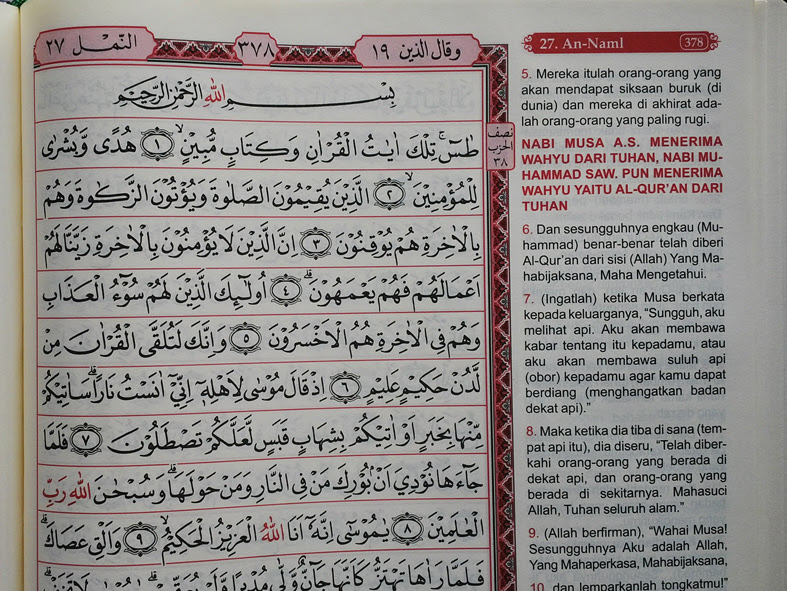 النمل ٢٧
٣٧٨
وقال الذين ١٩
بِسْــــــمِ اللهِ الرَّحْمٰنِ الرَّحِيْمِ
طٰسۤ ۚ تِلْكَ اٰيٰتُ الْقُرْاٰنِ وَكِتَابٍ مُّبِيْنٍ ۙ ﴿١﴾ هُدًى وَّبُشْرٰى
لِلْمُؤْمِنِيْنَ ۙ ﴿٢﴾ الَّذِيْنَ يُقِيْمُوْنَ الصَّلٰوةَ وَيُؤْتُوْنَ الزَّكٰوةَ وَهُمْ
بِالْاٰخِرَةِ هُمْ يُوْقِنُوْنَ ﴿٣﴾ اِنَّ الَّذِيْنَ لَا يُؤْمِنُوْنَ بِالْاٰخِرَةِ زَيَّنَّا لَهُمْ
اَعْمَالَهُمْ فَهُمْ يَعْمَهُوْنَ ۗ ﴿٤﴾ اُولٰۤىِٕكَ الَّذِيْنَ لَهُمْ سُوْۤءُ الْعَذَابِ
وَهُمْ فِى الْاٰخِرَةِ هُمُ الْاَخْسَرُوْنَ ﴿٥﴾ وَاِنَّكَ لَتُلَقَّى الْقُرْاٰنَ مِنْ
لَّدُنْ حَكِيْمٍ عَلِيْمٍ ﴿٦﴾ اِذْ قَالَ مُوْسٰى لِاَهْلِهٖٓ اِنِّيْٓ اٰنَسْتُ نَارًا ۗ سَاٰتِيْكُمْ
مِّنْهَا بِخَبَرٍ اَوْ اٰتِيْكُمْ بِشِهَابٍ قَبَسٍ لَّعَلَّكُمْ تَصْطَلُوْنَ ﴿٧﴾ فَلَمَّا
جَاۤءَهَا نُوْدِيَ اَنْۢ بُوْرِكَ مَنْ فِى النَّارِ وَمَنْ حَوْلَهَا ۗ وَسُبْحٰنَ اللهِ رَبِّ
الْعٰلَمِيْنَ ﴿٨﴾ يٰمُوْسٰٓى اِنَّهٗٓ اَنَا اللهُ الْعَزِيْزُ الْحَكِيْمُ ۙ ﴿٩﴾ وَاَلْقِ عَصَاكَ ۗ
فَلَمَّا رَاٰهَا تَهْتَزُّ كَاَنَّهَا جَاۤنٌّ وَّلّٰى مُدْبِرًا وَّلَمْ يُعَقِّبْ ۗ يٰمُوْسٰى لَا تَخَفْ
نصف
الحزب
٣٨
27. An-Naml
378
5. Mereka itulah orang-orang yang
akan mendapat siksaan buruk (di
dunia) dan mereka di akhirat ada-
lah orang-orang yang paling rugi.
NABI MUSA A.S. MENERIMA
WAHYU DARI TUHAN, NABI MU-
HAMMAD SAW. PUN MENERIMA
WAHYU YAITU AL-QUR'AN DARI
TUHAN
6. Dan sesungguhnya engkau (Mu-
hammad) benar-benar telah diberi
Al-Qur'an dari sisi (Allah) Yang Ma-
habijaksana, Maha Mengetahui.
7. (Ingatlah) ketika Musa berkata
kepada keluarganya, "Sungguh, aku
melihat api. Aku akan membawa
kabar tentang itu kepadamu, atau
aku akan membawa suluh api
(obor) kepadamu agar kamu dapat
berdiang (menghangatkan badan
dekat api)."
8. Maka ketika dia tiba di sana (tem-
pat api itu), dia diseru, "Telah diber-
kahi orang-orang yang berada di
dekat api, dan orang-orang yang
berada di sekitarnya. Mahasuci
Allah, Tuhan seluruh alam."
9. (Allah berfirman), "Wahai Musa!
Sesungguhnya Aku adalah Allah,
Yang Mahaperkasa, Mahabijaksana,
10. dan lemparkanlah tongkatmu!"